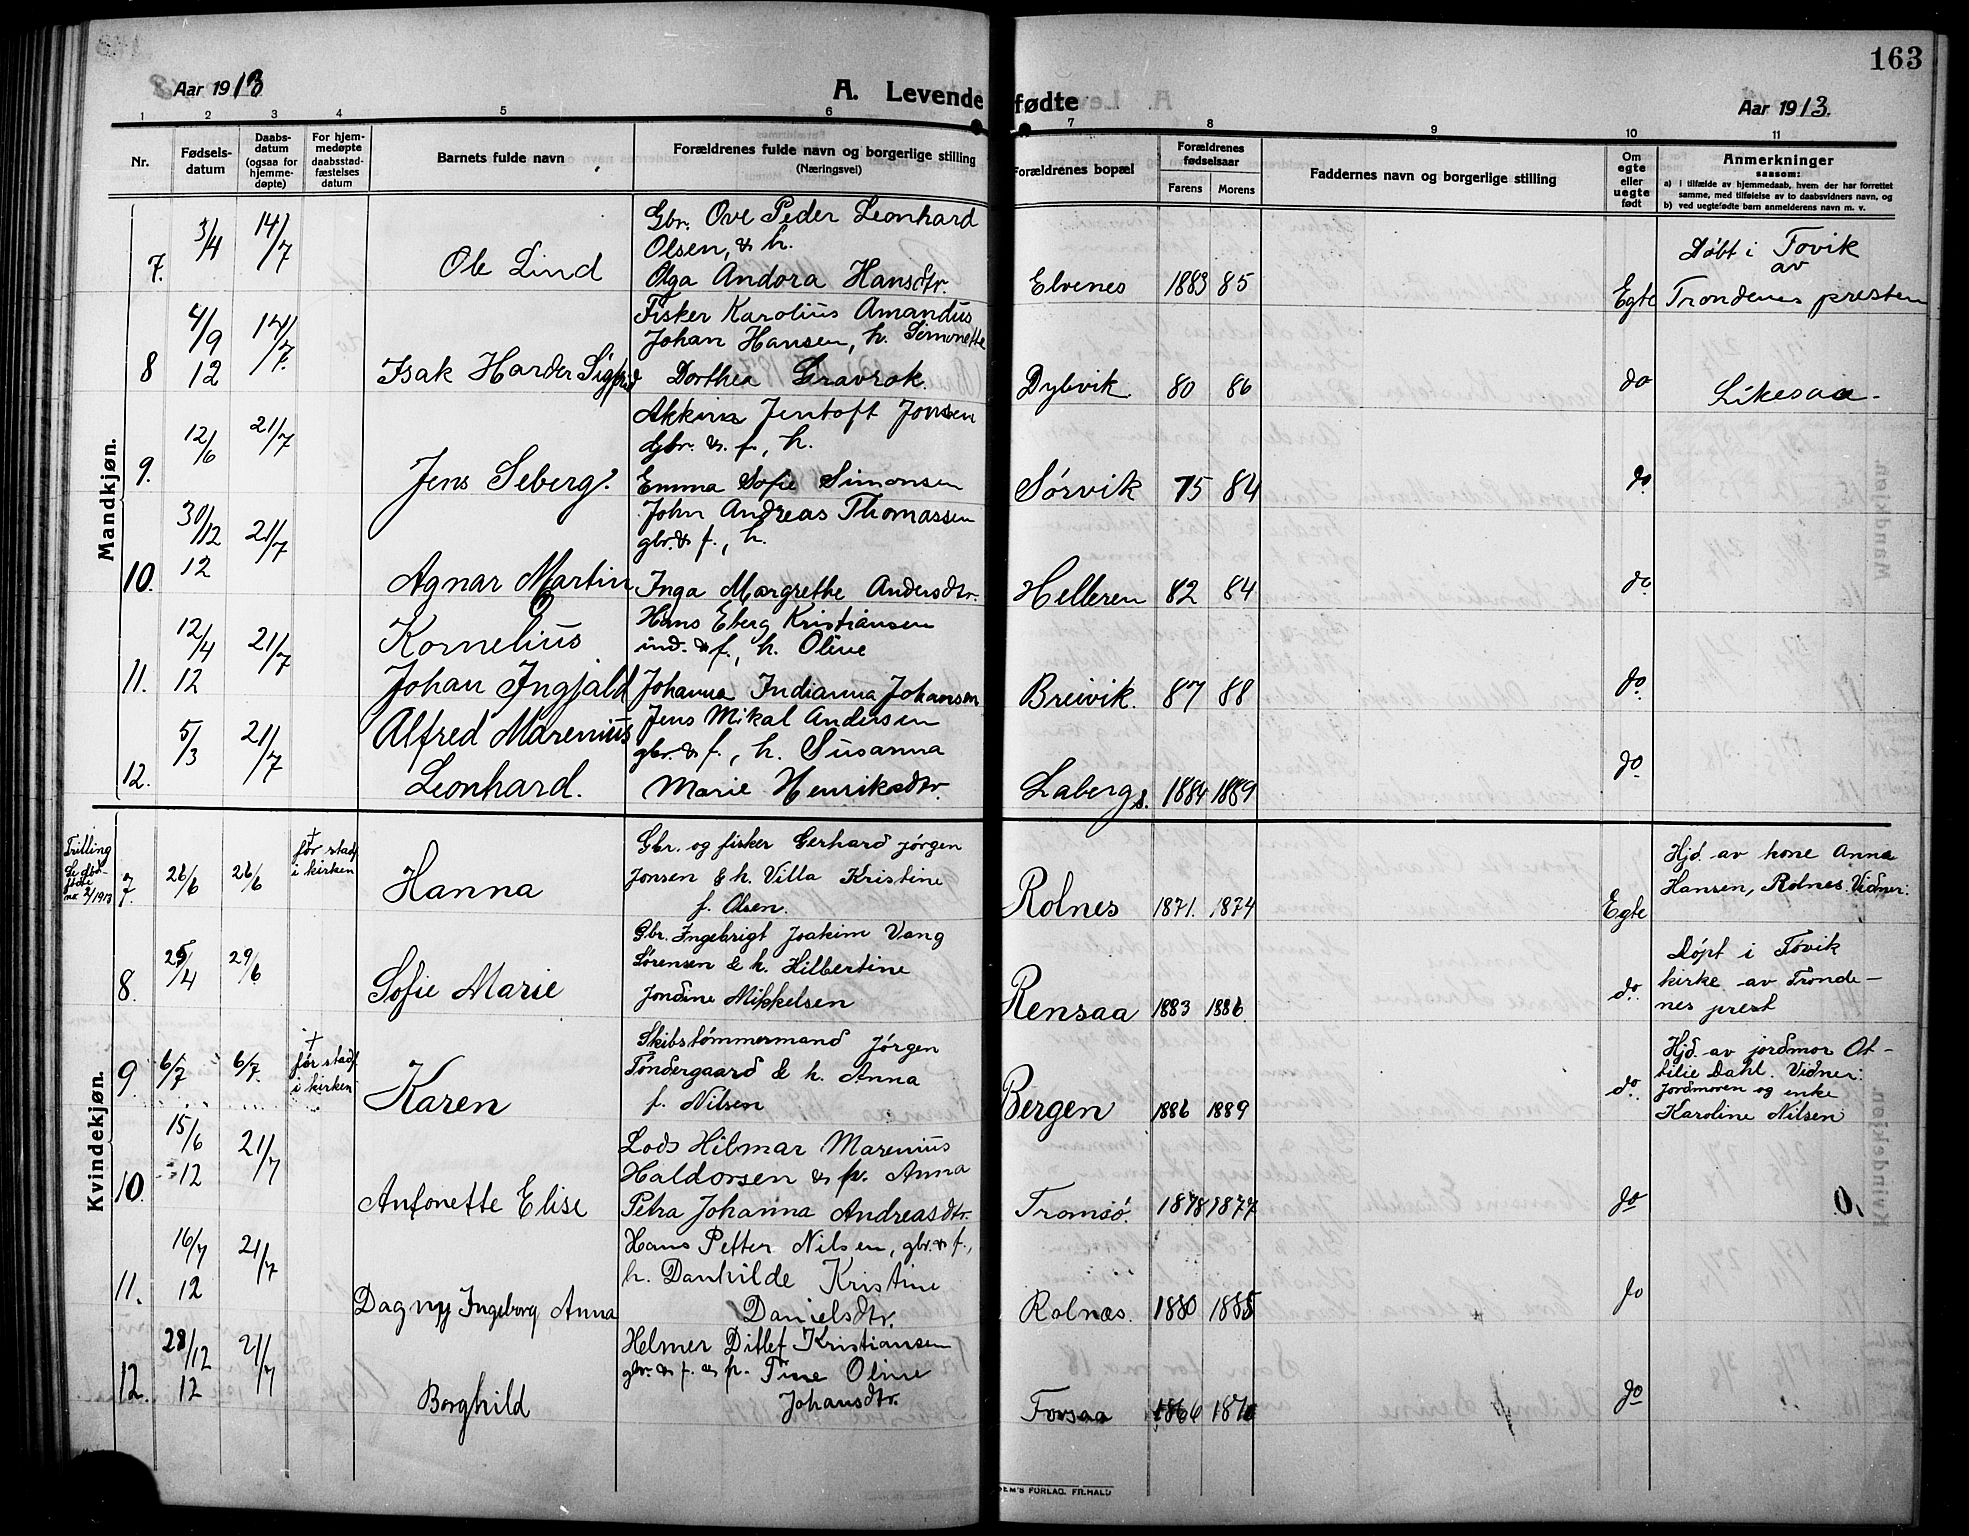 163
Aar 1913
A. Levende fødte
Aar 1913.
1 2 3 4 5 6 7 8 9 10 11
Nr.
Fødsels-
datum
Daabs-
datum
(ogsaa for
hjemme-
døpte)
For hjem-
medøpte
daabsstad-
fæstelses
datum
Barnets fulde navn
Forældrenes fulde navn og borgerlige stilling
(Næringsvei)
Forældrenes bopæl
Forældrenes
fødselsaar
Farens Morens
Faddernes navn og borgerlige stilling
Om
egte
eller
uegte
født
Anmerkninger
saasom:
a) i tilfælde av hjemmedaab, hvem der har forrettet
samme, med tilføielse av to daabsvidners navn, og
b) ved uegtefødte barn anmelderens navn m. v.
Mandkjøn.
7. 3/4 14/7 Ole Lind
Gbr. Ove Peder Leonhard
Olsen, & h.
Olga Andora Hansdtr.
Elvenes 1883 85 Egte
Døbt i Tovik
av
Trondenes presten
8 4/9 12 14/7. Isak Harder Sigfrid
Fisker Karolius Amandus
Johan Hansen, h. Simonette
Dorthea Gravrok.
Dybvik 80 86 do
Likesaa.
9. 12/6 21/7 Jens Seberg.
Akkina Jentoft Jonsen
Gbr. & f., h.
Emma Sofie Simonsen
Sørvik 75 84 do.
10. 30/12 12 21/7 Agnar Martin
John Andreas Thomassen
gbr. & f., h.
Inga Margrethe Andersdtr.
Helleren 82 84 do.
11. 12/4 12 21/7 Kornelius
Johan Ingjald
Hans Eberg Kristiansen
ind. & f., h. Oline
Johanna Indianna Johansen
Breivik. 87 88 do.
12. 5/3 21/7 Alfred Marenius
Leonhard.
Jens Mikal Andersen
gbr. & f., h. Susanna
Marie Henriksdtr.
Labergs. 1884 1889 do.
Kvindekjøn.
Trilling
fødte
7. 26/6 26/6
†
før stadf
i kirken
Hanna
Gbr. og fisker Gerhard Jørgen
Jonsen & h. Villa Kristine
f. Olsen.
Rolnes 1871. 1874 Egte
Hjd. av kone Anna
Hansen, Rolnes. Vidner:
8. 25/4 29/6 Sofie Marie
Gbr. Ingebrigt Joakim Vang
Sørensen & h. Hilbertine
Jondine Mikkelsen
Rensaa 1883 1886. do.
Døpt i Tovik
kirke av Tronde-
nes prest
9 6/7 6/7.
†
før stadf
i kirken
Karen
Skibstømmermand Jørgen
Tøndergaard & h. Anna
f. Nilsen
Bergen 1886 1889 do.
Hjd. av jordmor Ot-
tilie Dahl. Vidner:
Jordmoren og enke
Karoline Nilsen
10. 15/6 12 21/7 Antonette Elise
Lods Hilmar Marenius
Haldorsen & h. Anna
Petra Johanna Andreasdtr.
Tromsø. 1878 1877 do
0.
11. 16/7 12 21/7 Dagny Ingeborg Anna
Hans Petter Nilsen, gbr. & f.,
h. Danhilde Kristine
Danielsdtr.
Rolnæs. 1880 1885 do
12. 28/12 12 21/7 Borghild
Helmer Ditlef Kristiansen
gbr. & f. & h. Tine Oline
Johansdtr.
Forsaa 1866 1870 do
EM'S FORLAG. FR.HALD